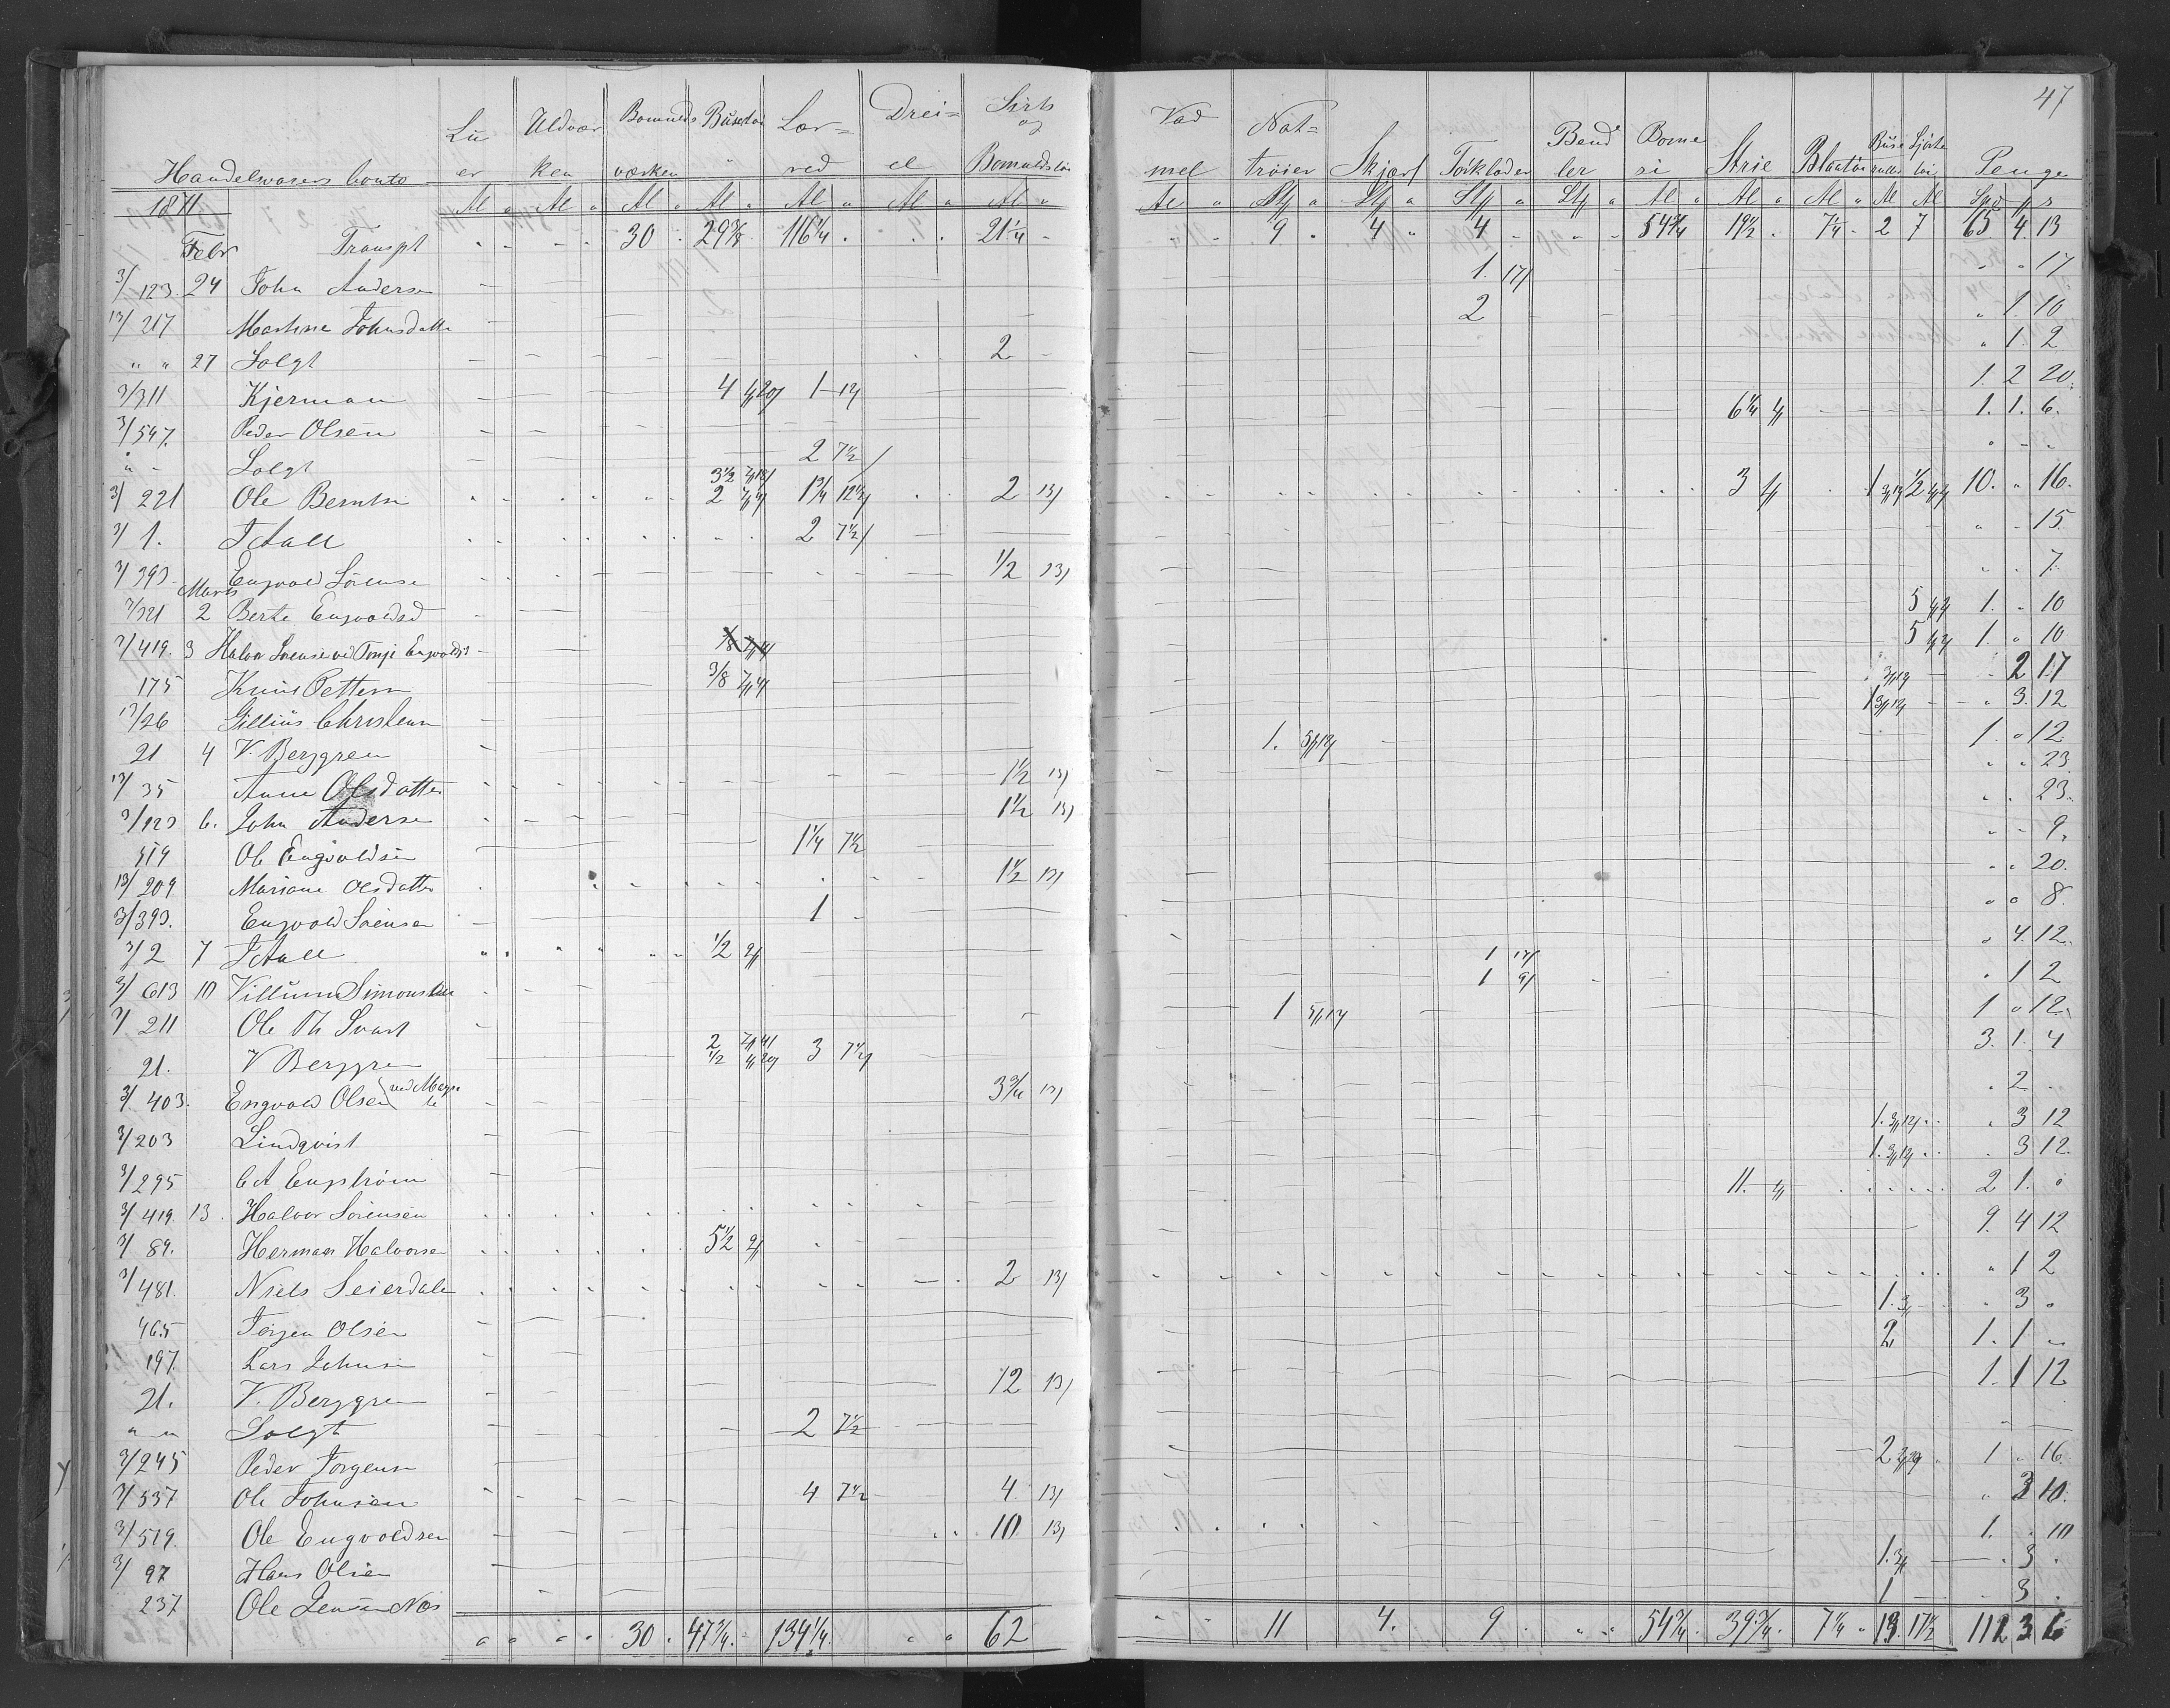 47
Handelvarers Conto Lu er Uldvær ken Bomulds værken Busertøi Lær= red Drei= el Sirts og Bomuldstøi Vad mel Nat= trøier Skjørt Tørklæder Bend ler Bome si Strie Blaatøi Buse ruller Sjirte tøi Penge
1871 Al Al Al Al Al Al Al Al Stk Stk Stk Stk Al Al Al Al Al Spd
Febr Transpt 30 29 7/8 116 1/4 21 1/4 9 4 4 54 3/4 19 1/2 7 1/4 2 7 65 4 13
3/123 24 John Anderse 1 17/ 17
13/217 Martine Johnsdatte 2 1 10
" " 27 Solgt 2 1 2
3/311 Kjerman 4 1/20/ 1 12/ 1 2 20
3/547 Peder Olsen 6 1/4 1/ 1 1 6
" Solgt 2 7 1/2/
3/221 Ole Berntsn 3 1/2 2 1 3/4 12 1/2/ 2 13/ 3 1/ 1 3/12/ 1/2 10 " 16
3/1 T Aall 2 7 1/2/ 15
3/393 Engvold Sørense 1/2 13/ 7
Marts
3/321 2 Berte Engvoldsd 5 1 " 10
3/419 3 Halvor Sørense ved Tonje Engvoldsd 5 1 " 10
175 Knud Pettersn 3/8 3/12/ 2 17
13/26 Gillius Christensn 1 3/12/ 3 12
21 4 V. Berggren 1 5/12/ 1 " 12
13/35 Anne Olsdatter 1 1/2 13/ 23
3/123 6 John Anderse 1 1/2 13/ 23
519 Ole Engvoldsen 1 1/4 7 1/2 9
13/209 Mariane Olsdatte 1 1/2 13/ 20
3/393 Engvold Sørensen 1 8
3/2 7 T Aall 1/2 9/ 1 17/ 4 12
3/613 10 Villum Simonsen 1 9/ 1 2
3/211 Ole Th Svart 1 5/12/ 1 " 12
21 V Berggren 2 1/2 3 7 1/2/ 3 1 4
3/403 Engvold Olsen ved Magn 3 3/4 13/ 2
3/203 Lindqvist 1 3/12/ 3 12
3/295 C A Engstrøm 1 3/12/ 3 12
3/419 13 Halvor Sørensen 11 1/ 2 1 "
3/89 Herman Halvorse 5 1/2 9/ 9 4 12
3/481 Niels Seierdale 2 13/ 1 2
465 Jørgen Olsen 1 3/ 3 "
197 Lars Johnsen 2 1 1 "
21 V. Berggren 12 13/ 1 1 12
" " Solgt 2 7 1/2
3/245 Peder Jørgensn 2 1 " 16
3/537 Ole Johnsen 4 7 1/2 4 13/ 3 10
3/519 Ole Engvoldsen 10 13/ 1 " 10
3/97 Hans Olsen 1 3/ 3
237 Ole Jensen Næs 1 3
30 47 3/4 134 1/4 62 11 4 9 54 3/4 39 3/4 7 1/4 13 17 1/2 112 3 6